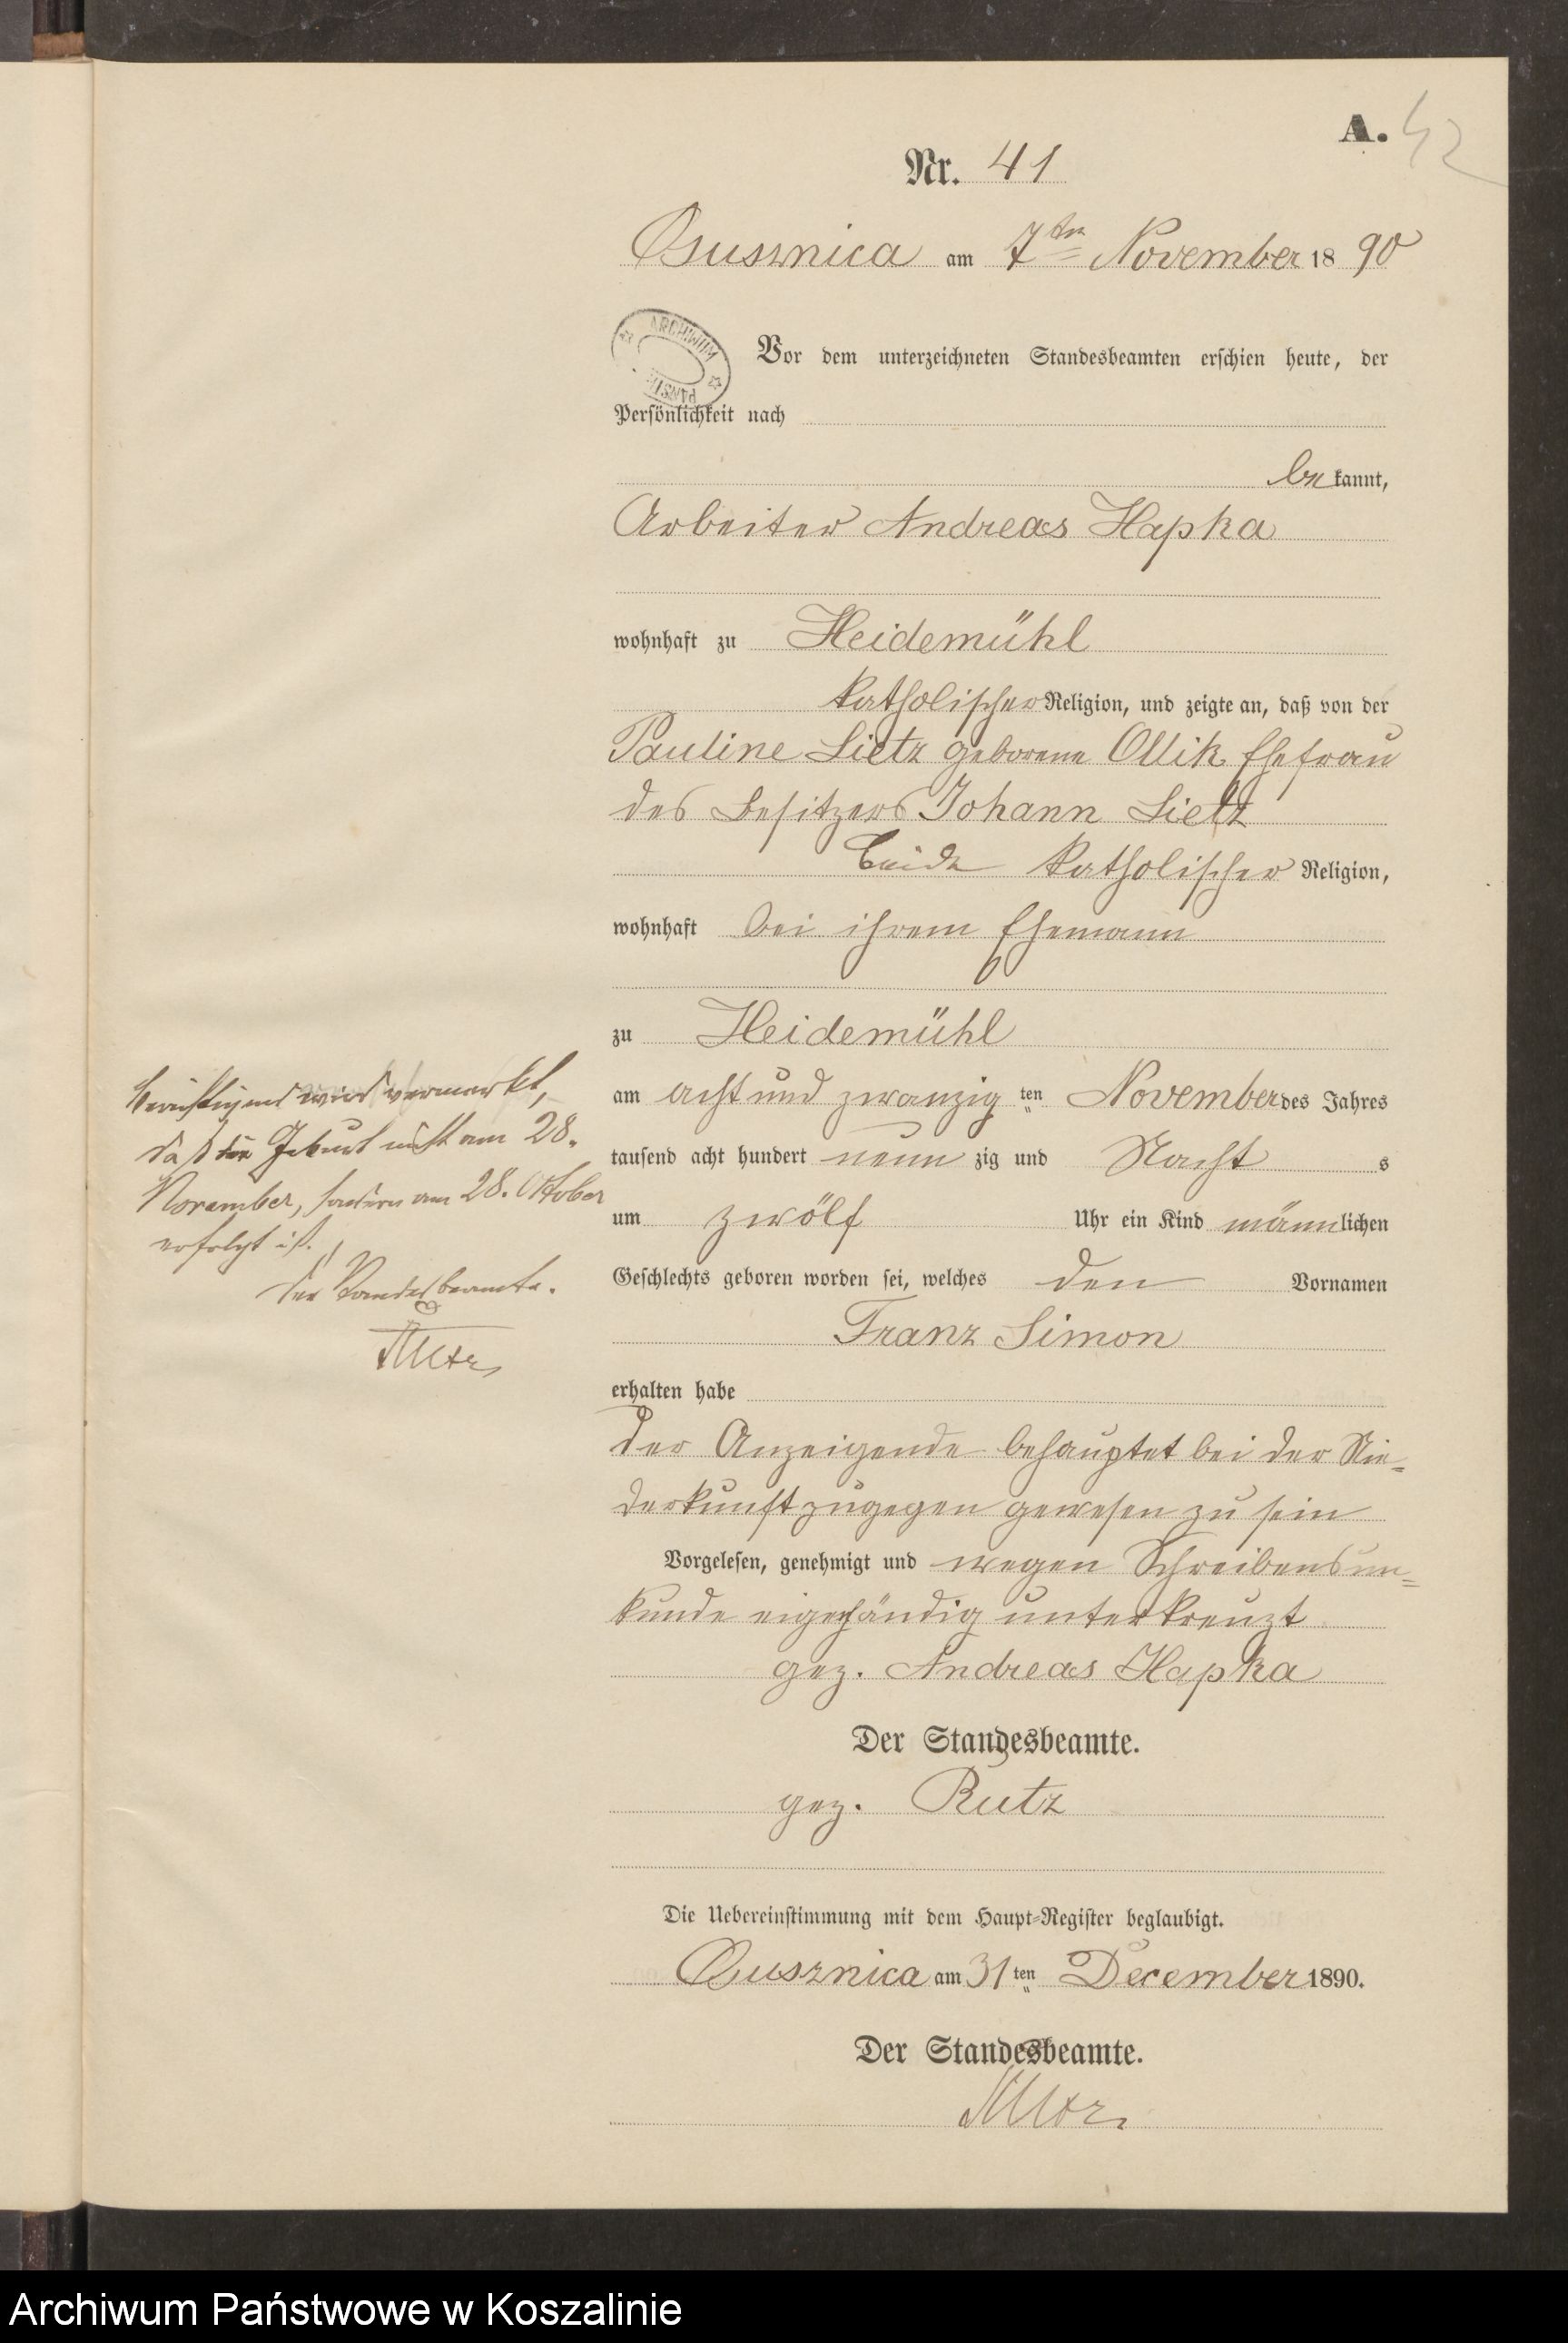 A. 42
Nr. 41
Ousznica am 7ten November 1890
ARCHIWUM
Vor dem unterzeichneten Standesbeamten erschien heute, der
Persönlichkeit nach
bekannt,
Arbeiter Andreas Hapka
wohnhaft zu Heidemühl
katholischer Religion, und zeigte an, daß von der
Pauline Lietz geborene Ollik Ehefrau
des Besitzers Johann Lietz
beide katholischer Religion,
wohnhaft bei ihrem Ehemann
zu Heidemühl
am acht und zwanzig ten November des Jahres
tausend acht hundert neun zig und Nacht s
um zwölf Uhr ein Kind männlichen
Geschlechts geboren worden sei, welches den Vornamen
Franz Simon
erhalten habe
Der Anzeigende behauptet bei der Nie-
derkunft zugegen gewesen zu sein
Vorgelesen, genehmigt und wegen Schreibensun-
kunde eigenhändig unterkreuzt
gez. Andreas Hapka
Der Standesbeamte.
gez. Rutz
Die Uebereinstimmung mit dem Haupt-Register beglaubigt.
Ousznica am 31 ten December 1890.
Der Standesbeamte.
Rutz
Berichtigend wird vermerkt,
daß die Geburt nicht am 28.
November, sondern am 28. Oktober
erfolgt ist.
Der Standesbeamte.
Rutz
Archiwum Państwowe w Koszalinie